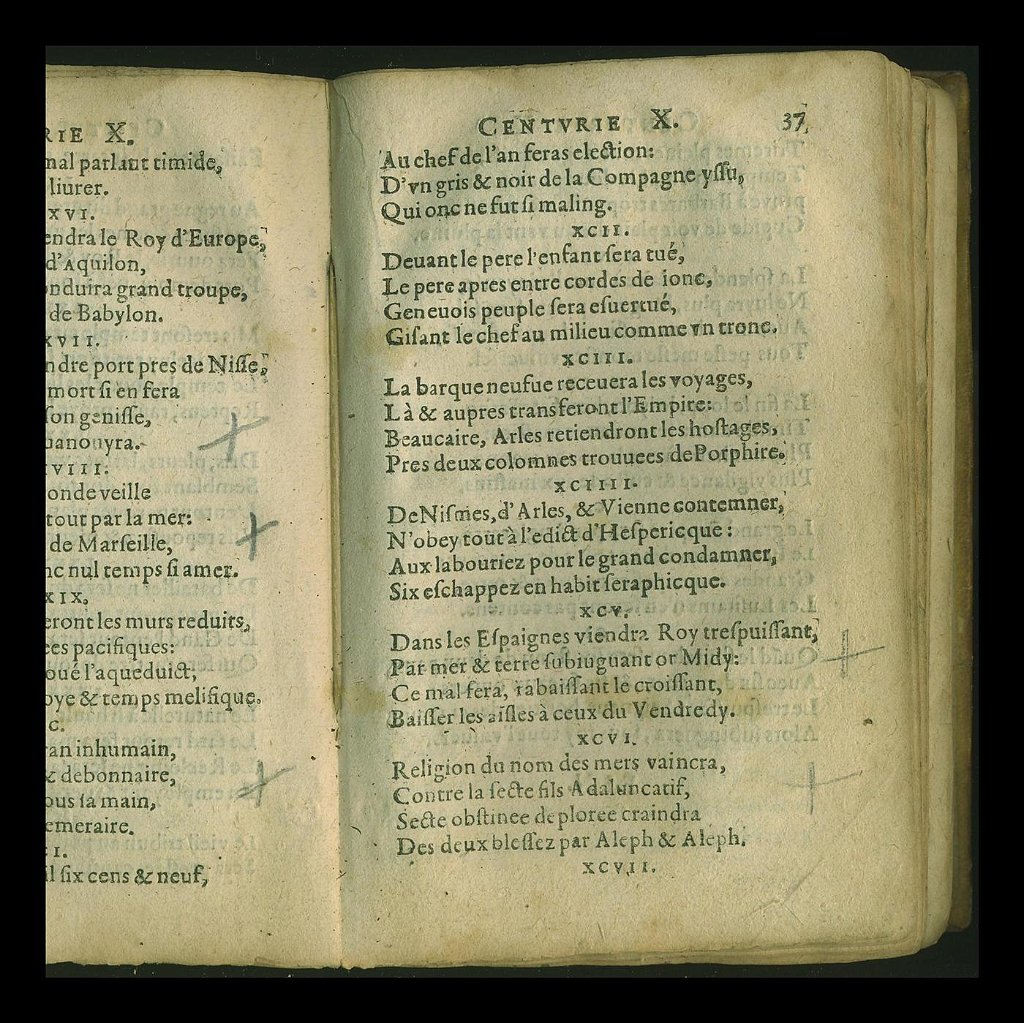 RIE X.
nal parlant timide,
liurer.
XVI.
endra le Roy d'Europe,
d'Aquilon,
nduira grand troupe,
de Babylon.
XVII.
ndre port pres de Nisse,
mort si en fera
son genisse,
uanouyra.
VIII.
onde veille
tout par la mer:
de Marseille,
nc nul temps si amer.
XIX.
eront les murs reduits,
ees pacifiques:
oué l'aqueduict,
oye & temps melifique.
C.
ran inhumain,
& debonnaire,
ous sa main,
emeraire.
I.
il six cens & neuf,
CENTVRIE X. 37
Au chef de l'an feras election:
D'vn gris & noir de la Compagne yssu,
Qui onc ne fut si maling.
XCII.
Deuant le pere l'enfant sera tué,
Le pere apres entre cordes de ionc,
Geneuois peuple sera esuertué,
Gisant le chef au milieu comme vn tronc.
XCIII.
La barque neufue receuera les voyages,
Là & aupres transferont l'Empire:
Beaucaire, Arles retiendront les hostages,
Pres deux colomnes trouuees de Porphire.
XCIIII.
De Nismes, d'Arles, & Vienne contemner,
N'obey tout à l'edict d'Hespericque:
Aux labouriez pour le grand condamner,
Six eschappez en habit seraphicque.
XCV.
Dans les Espaignes viendra Roy trespuissant,
Par mer & terre subiuguant or Midy:
Ce mal fera, rabaissant le croissant,
Baisser les aisles à ceux du Vendredy.
XCVI.
Religion du nom des mers vaincra,
Contre la secte fils Adaluncatif,
Secte obstinee deploree craindra
Des deux blessez par Aleph & Aleph.
XCVII.